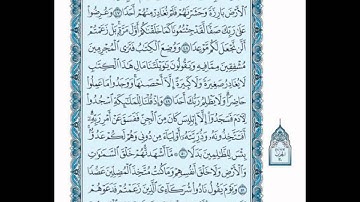 ٱلْأَرْضَ بَارِزَةً وَحَشَرْنَٰهُمْ فَلَمْ نُغَادِرْ مِنْهُمْ أَحَدًا ٤٧ وَعُرِضُوا۟
عَلَىٰ رَبِّكَ صَفًّا لَّقَدْ جِئْتُمُونَا كَمَا خَلَقْنَٰكُمْ أَوَّلَ مَرَّةٍۭ بَلْ زَعَمْتُمْ
أَلَّن نَّجْعَلَ لَكُم مَّوْعِدًا ٤٨ وَوُضِعَ ٱلْكِتَٰبُ فَتَرَى ٱلْمُجْرِمِينَ
مُشْفِقِينَ مِمَّا فِيهِ وَيَقُولُونَ يَٰوَيْلَتَنَا مَالِ هَٰذَا ٱلْكِتَٰبِ
لَا يُغَادِرُ صَغِيرَةً وَلَا كَبِيرَةً إِلَّآ أَحْصَىٰهَا وَوَجَدُوا۟ مَا عَمِلُوا۟
حَاضِرًا وَلَا يَظْلِمُ رَبُّكَ أَحَدًا ٤٩ وَإِذْ قُلْنَا لِلْمَلَٰٓئِكَةِ ٱسْجُدُوا۟
لِـَٔادَمَ فَسَجَدُوٓا۟ إِلَّآ إِبْلِيسَ كَانَ مِنَ ٱلْجِنِّ فَفَسَقَ عَنْ أَمْرِ رَبِّهِۦٓ
أَفَتَتَّخِذُونَهُۥ وَذُرِّيَّتَهُۥٓ أَوْلِيَآءَ مِن دُونِى وَهُمْ لَكُمْ عَدُوٌّۢ
بِئْسَ لِلظَّٰلِمِينَ بَدَلًا ٥٠ مَّآ أَشْهَدتُّهُمْ خَلْقَ ٱلسَّمَٰوَٰتِ
وَٱلْأَرْضِ وَلَا خَلْقَ أَنفُسِهِمْ وَمَا كُنتُ مُتَّخِذَ ٱلْمُضِلِّينَ عَضُدًا
٥١ وَيَوْمَ يَقُولُ نَادُوا۟ شُرَكَآءِىَ ٱلَّذِينَ زَعَمْتُمْ فَدَعَوْهُمْ